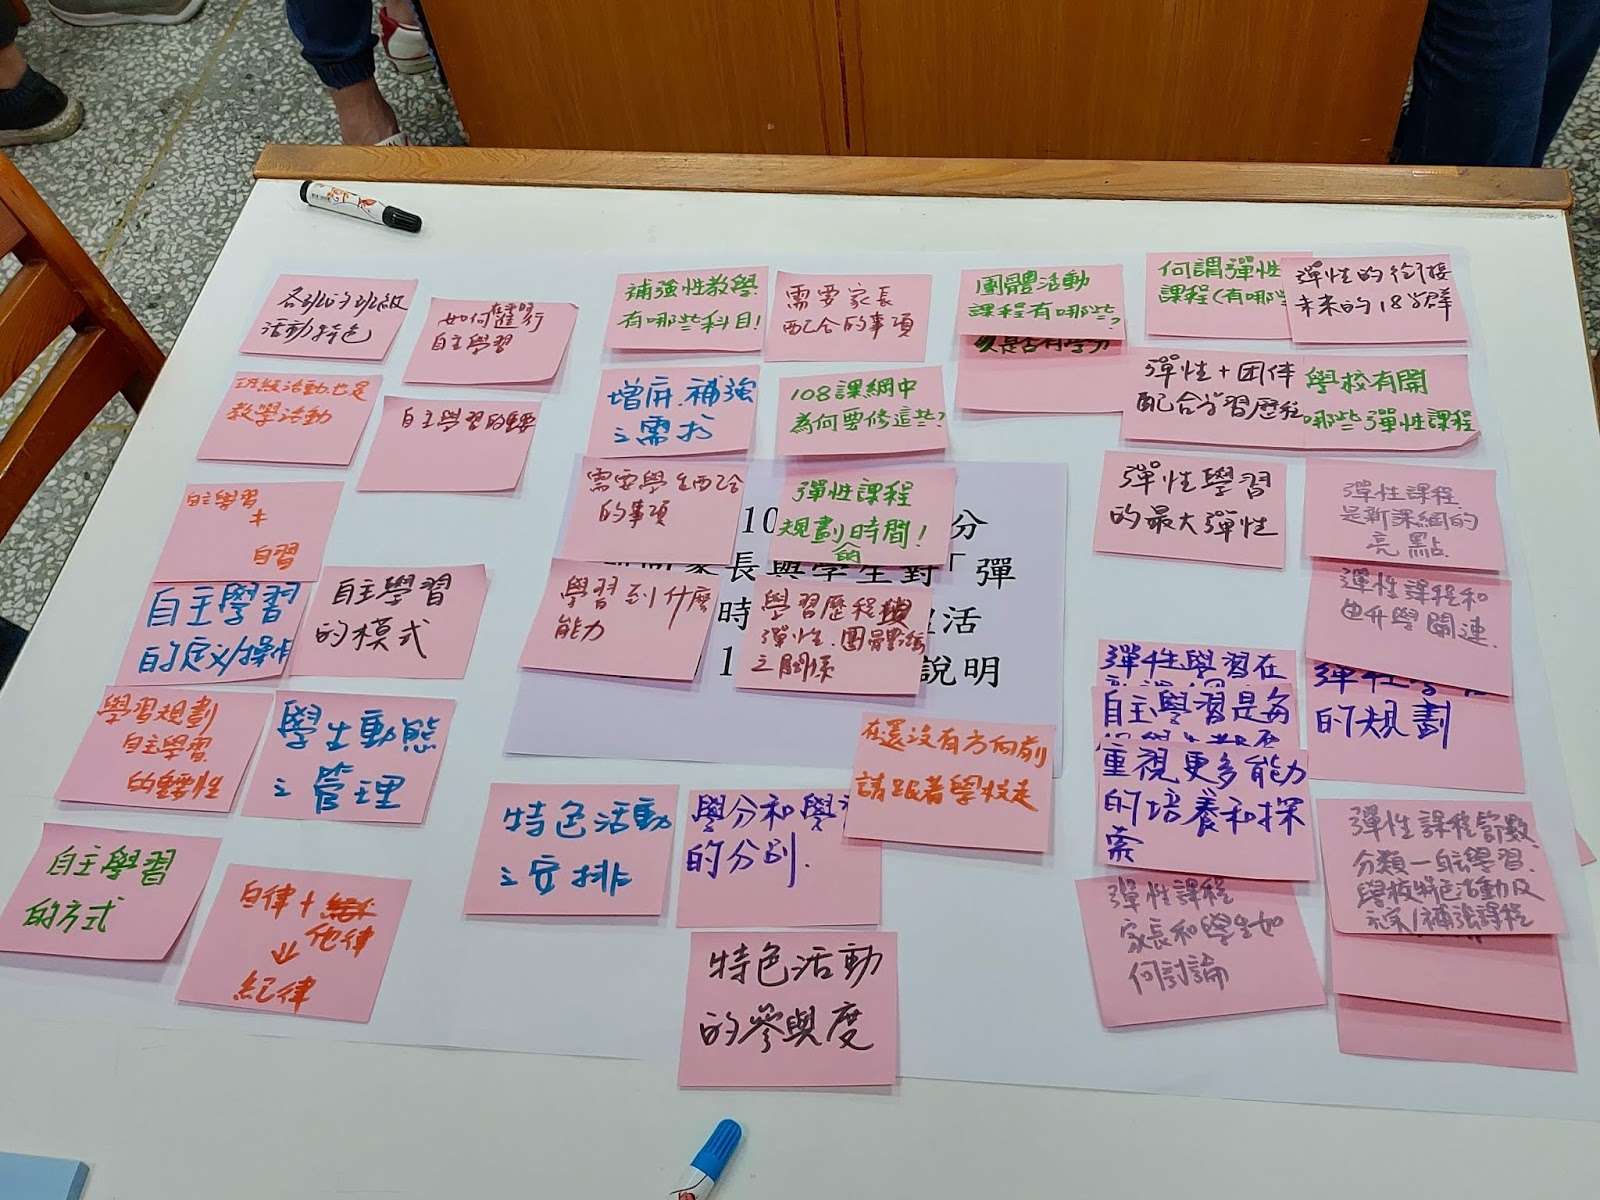 各班的班級
活動特色
如何進行
自主學習
班級活動也是
教學活動
自主學習的重要
自主學習
≠
自習
自主學習
的定義/操作
自主學習
的模式
學習規劃
自主學習
的重要性
學生動態
之管理
自主學習
的方式
自律+
他律
⇓
紀律
補強性教學
有哪些科目!
需要家長
配合的事項
增廣.補強
之需求
108課綱中
為何要修這些?
需要學生配合
的事項
彈性課程
規劃的時間!
學習到什麼
能力
學習歷程與
彈性.團體活動
之關係
10 分
家長與學生對「彈
時 活
1 說明
在還沒有方向前
請跟著學校走
特色活動
之安排
學分和學
的分別.
特色活動
的參與度
團體活動
課程有哪些?
是否有學分
何謂彈性
課程(有哪些
彈性的銜接
未來的18學群
彈性+团体
配合學習歷程
學校有開
哪些彈性課程
彈性學習
的最大彈性
彈性課程
是新課綱的
亮點.
彈性課程和
升學關連.
的規劃
彈性學習在
自主學習是每
重視更多能力
的培養和探
索
彈性課程
家長和學生如
何討論
彈性課程節數
分類—自主學習.
學校特色活動及
充實/補強課程